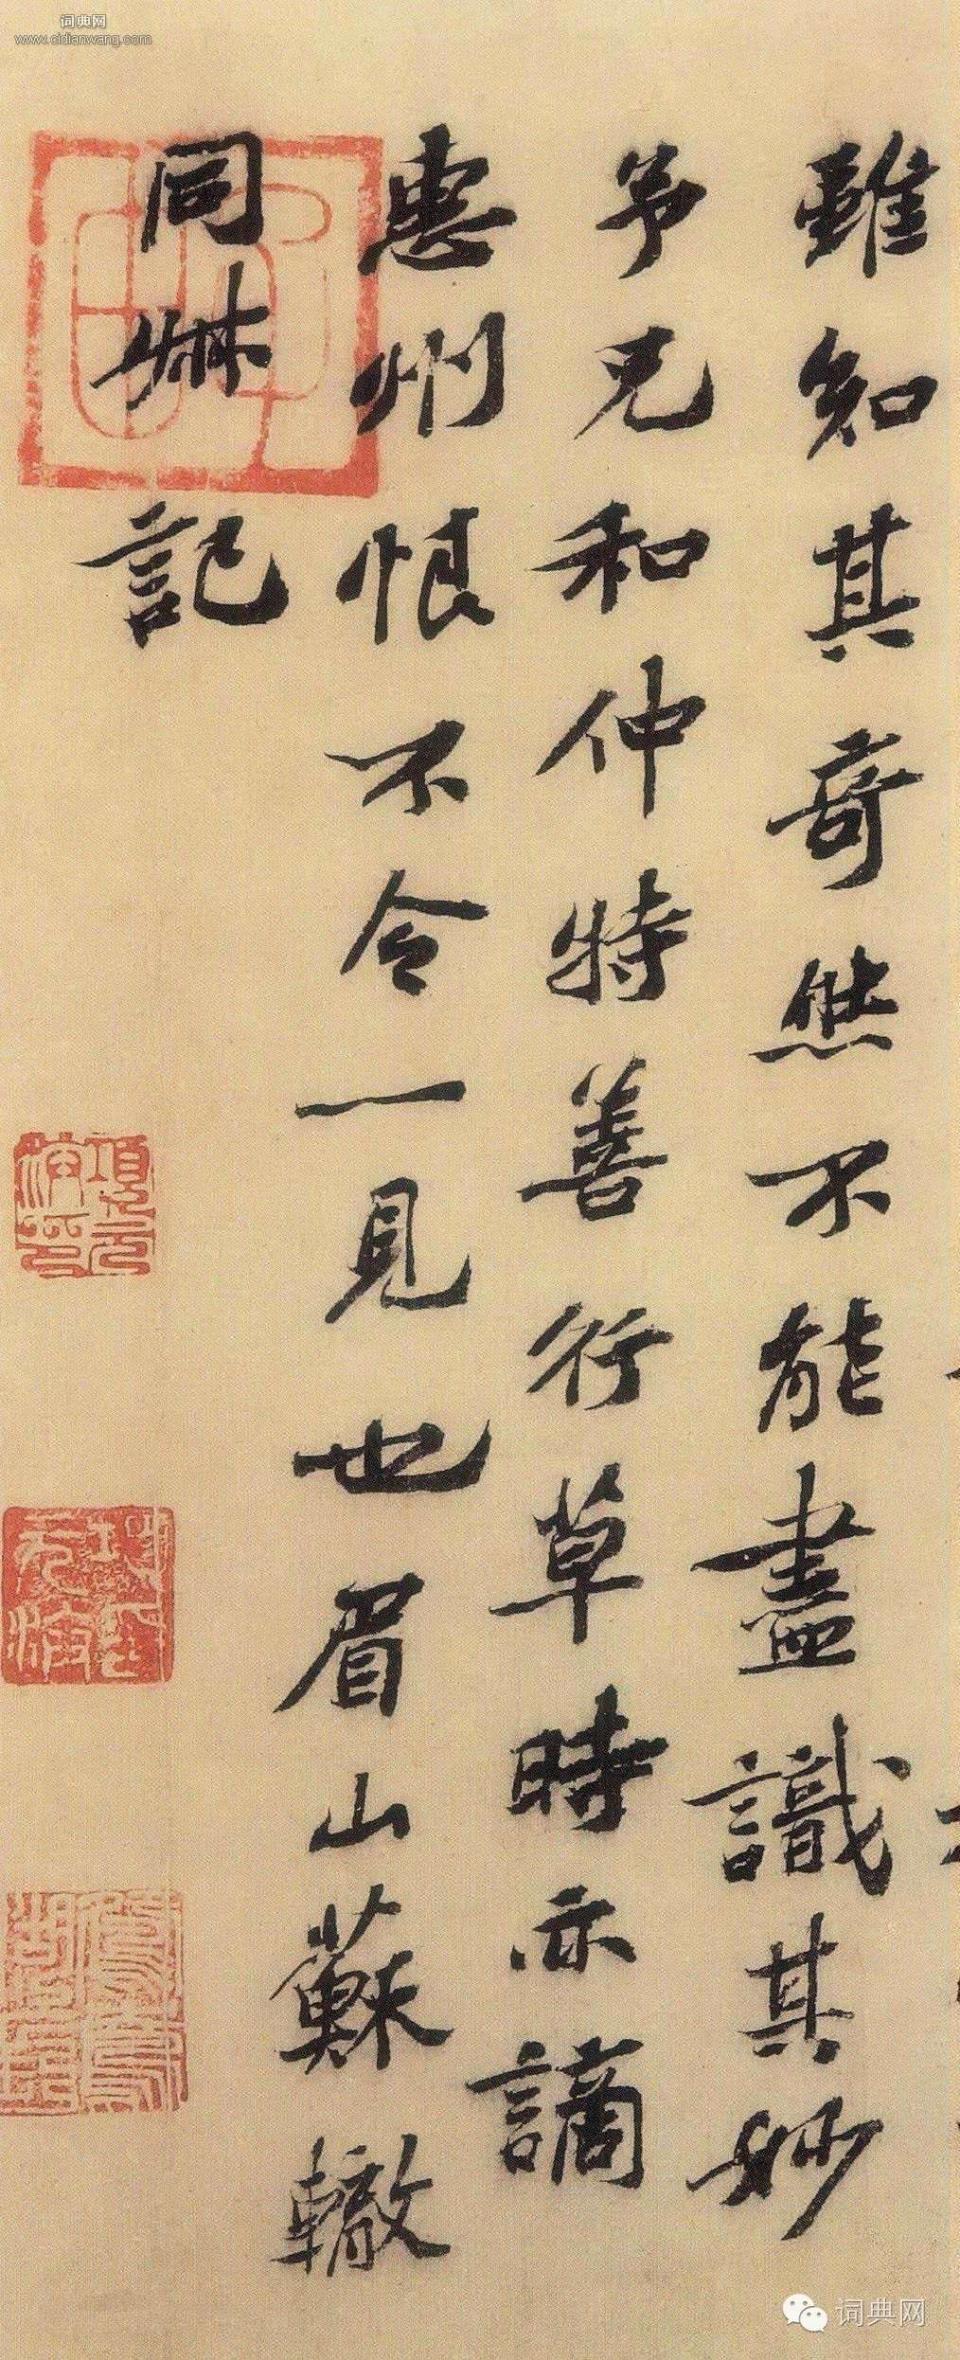 词典网
www.cidianwang.com
雖知其奇然不能盡識其妙
予兄和仲特善行草時亦謫
惠州恨不令一見也眉山蘇轍
同叔記
項元汴印
词典网